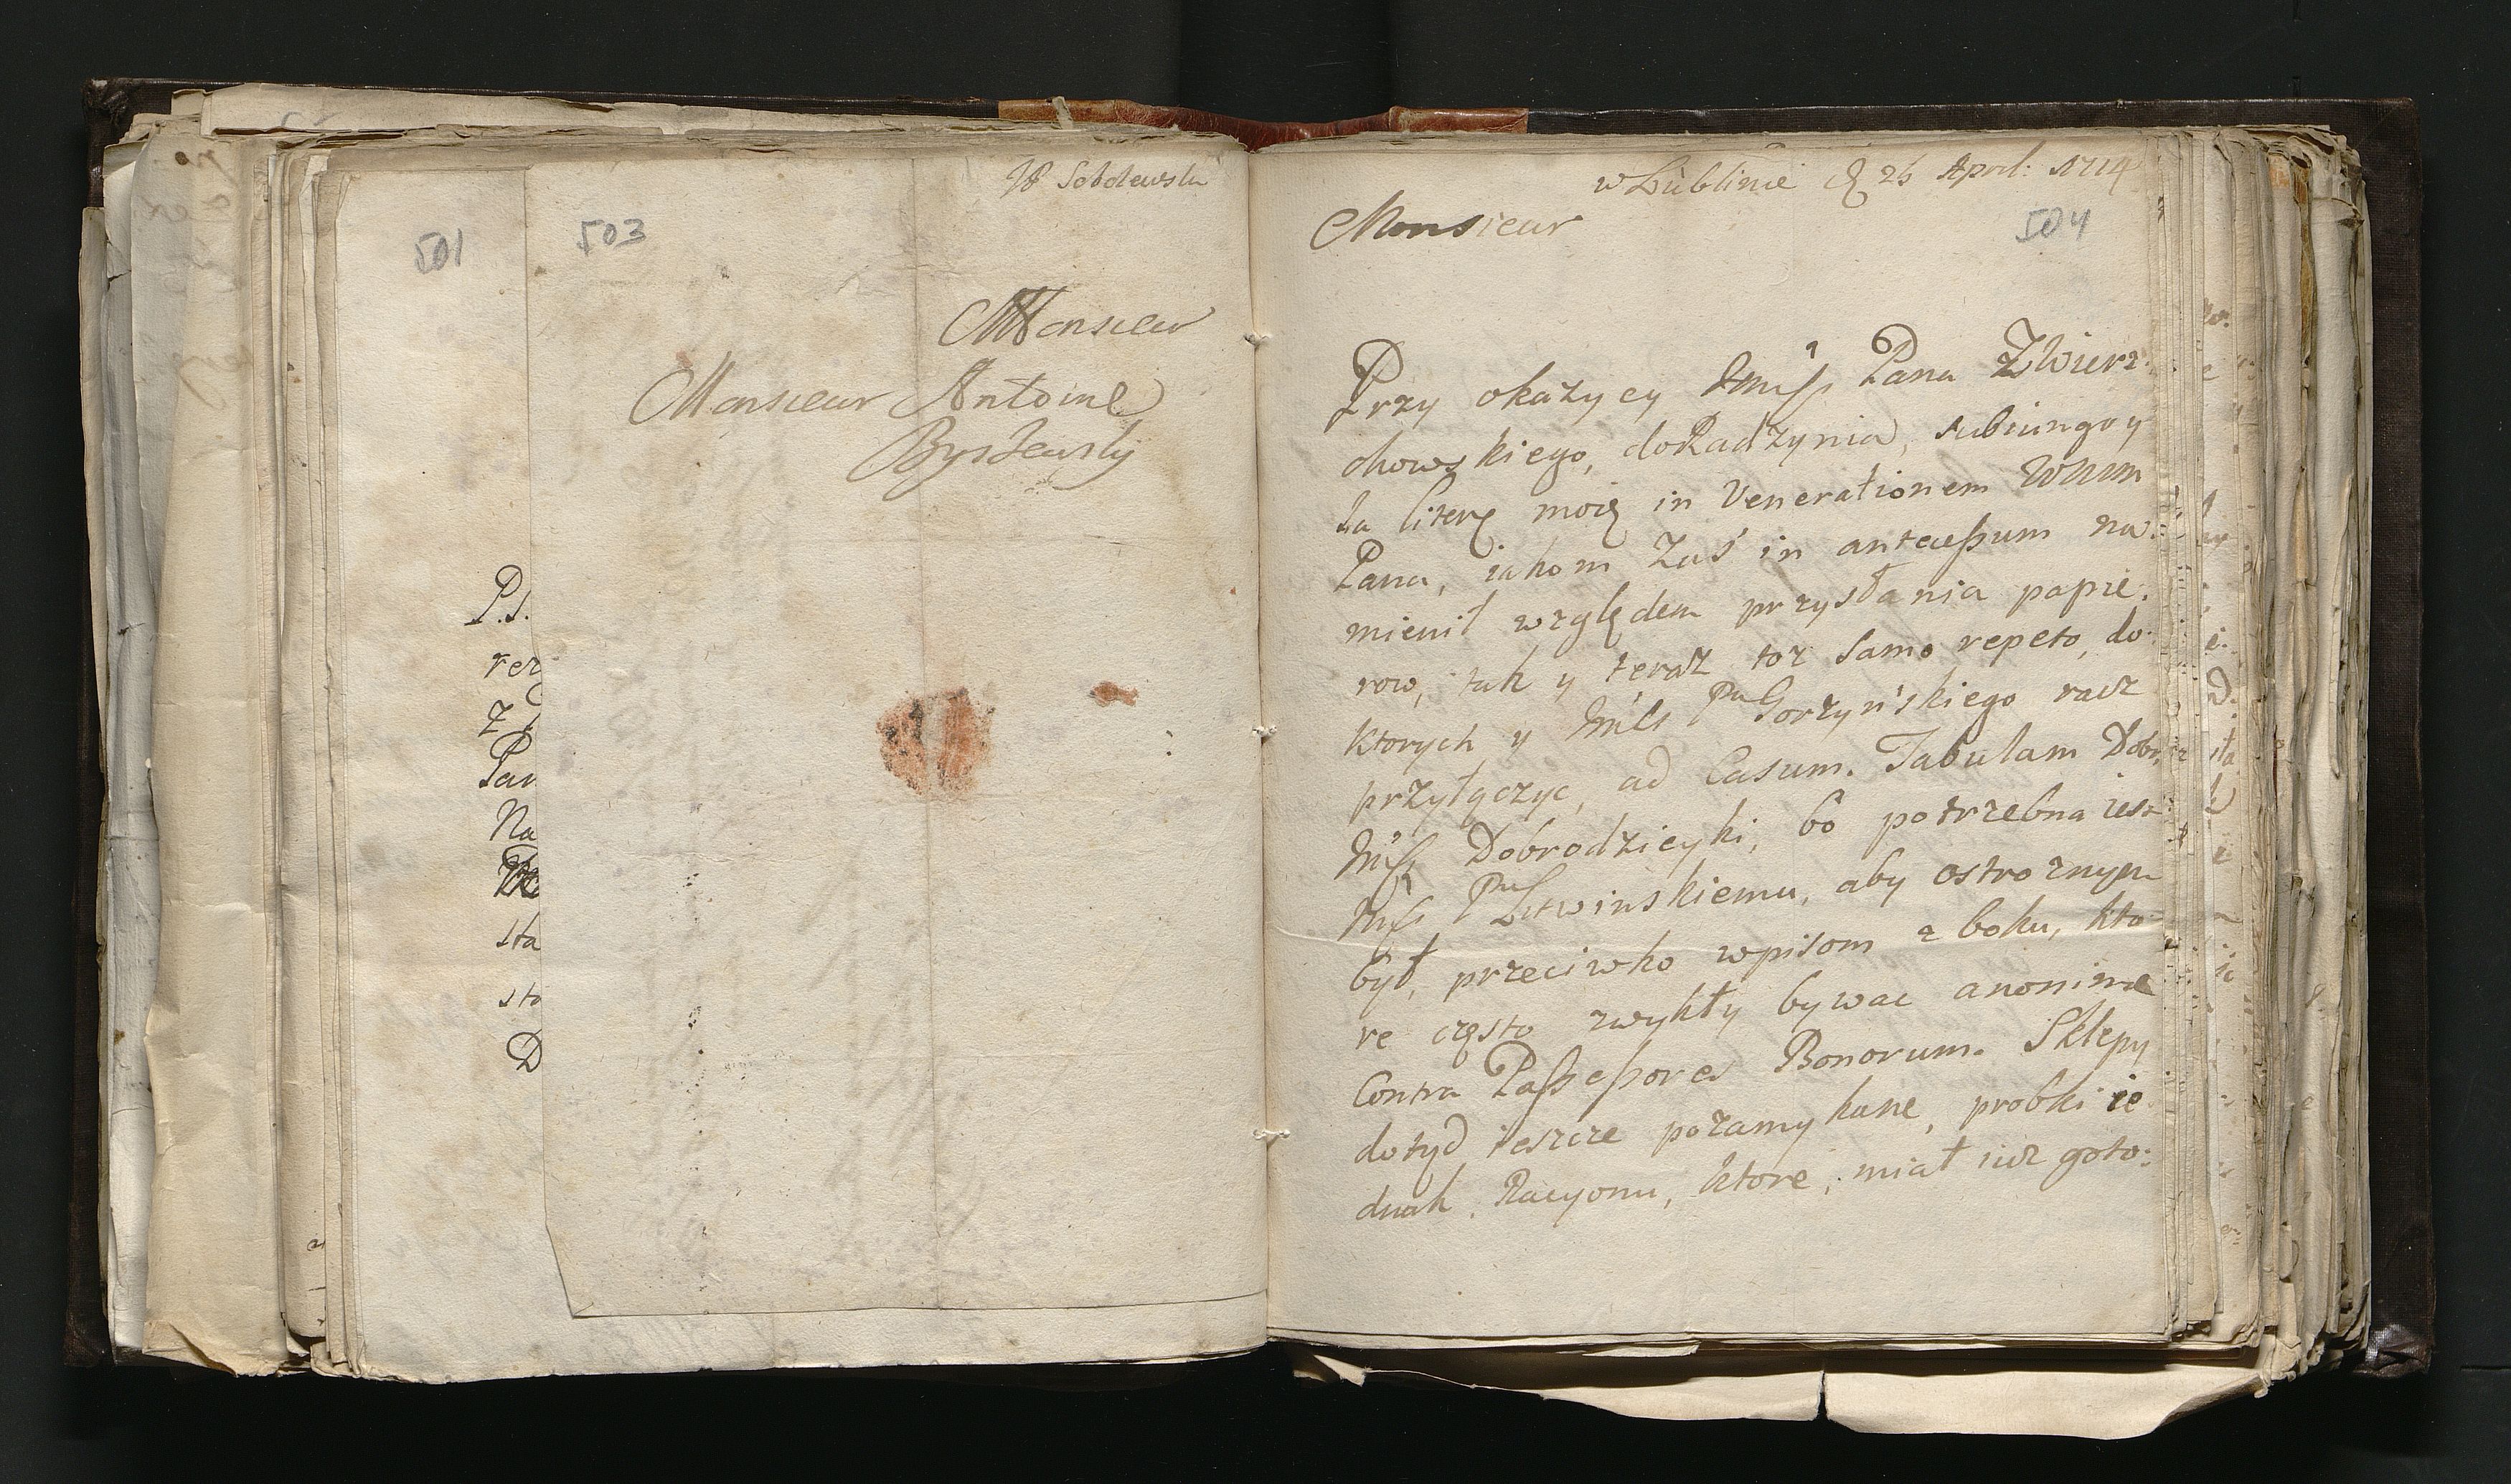 501
P.S.
rez
Z
Pan
Na
sta
sto
D
503
JP Sobolewski
Monsieur
Monsieur Antoine
Bystewsky
w Lublinie d 26 April: 1714
504
Monsieur
Przy okazycy Jmsc Pana Zwierz:
chowskiego, do Radzynia, subiungo y
ta literę moię in Venerationem WMM
Pana, iakom Zaś in antecessum na:
mienił względem przysłania papie:
row, tak y teraz toż samo repeto, do
ktorych y JmCi Pu Gorzyńskiego racz
przyłączyc, ad Casum. Tabulam Dobr,
Jmsci Dobrodzieyki, bo potrzebna iest
JmCi Pu Litwinskiemu, aby ostroznym
był, przeciwko wpisom z boku, kto
re często zwykły bywac anonime
Contra Possessores Bonorum. Sklepy
dotyd ieszcze pozamykane, probki ie
dnak Racyonu, ktore, miał iuz goto: